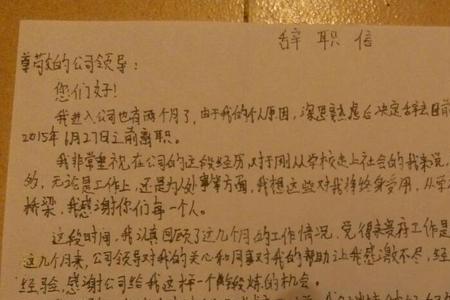 辞职信
尊敬的公司领导：
您们好！
我进入公司也有两个月了，由于我的个人原因，深思熟虑后决定辞去目前
2015年6月27日之前离职。
我非常重视在公司的这段经历，对于刚从学校走上社会的我来说，
的，无论是工作上，还是为人处事等方面，我想这些对我将终身受用，从学
桥梁，我感谢你们每一个人。
这段时间，我认真回顾了这几个月的工作情况，觉得来贵存工作是
这几个月来，公司领导对我的关心和同事对我的帮助让我感激不尽，经
经验，感谢公司给我这样一个锻炼的机会。